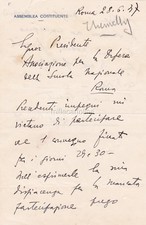 ASSEMBLEA COSTITUENTE
Roma 28.6.47
Signor Presidente
Associazione per la Difesa
della Scuola Nazionale
Roma
Precedenti impegni mi
vietano di partecipare
al convegno fissato
per i giorni 29-30-
Nell'esprimerle la mia
dispiacenza per la mancata
partecipazione prego